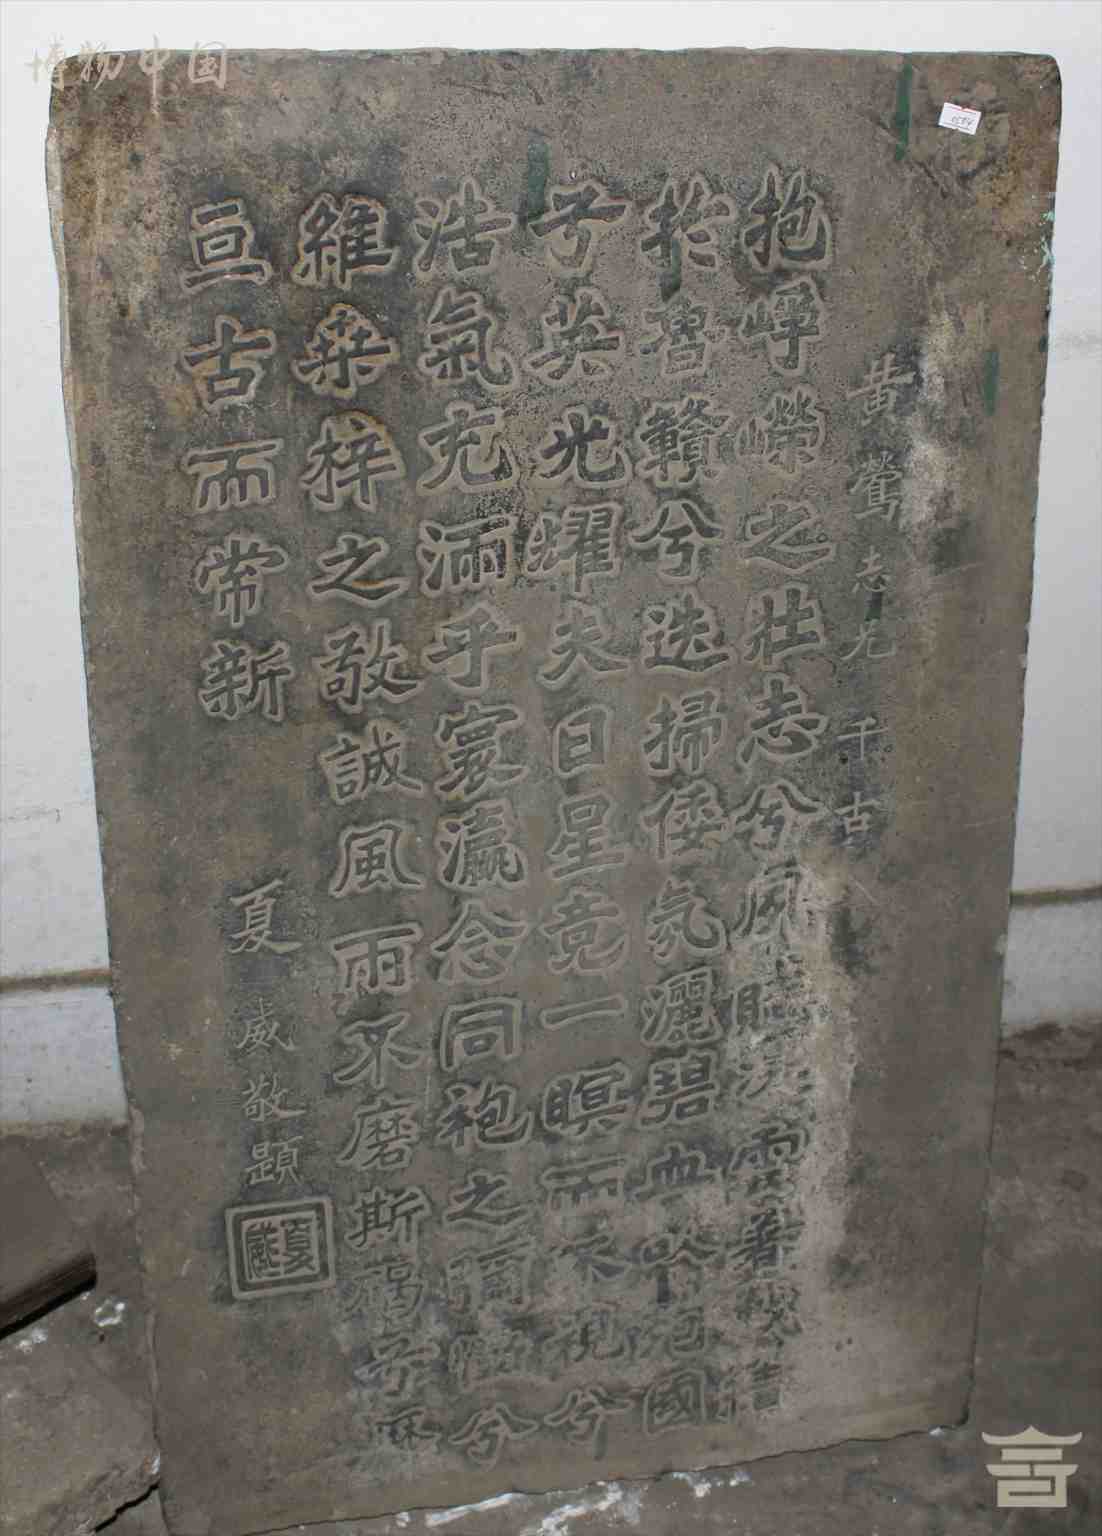 博物中国
黄鶯志兄千古
抱崢嶸之壯志兮夙雲著戰績
於魯贛兮迭掃倭氛灑碧血國
兮英光耀夫日星竟一瞑而不視兮
浩氣充滿乎寰瀛念同袍之彌慟兮
維桑梓之敬誠風雨不磨斯碣兮
亘古而常新
夏威敬題
夏威